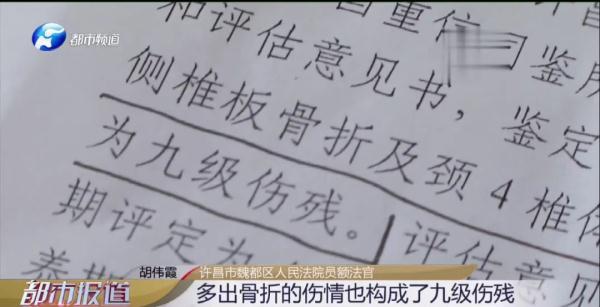 都市频道
和评估意见书，鉴定
侧椎板骨折及颈4椎体
为九级伤残。评估意见
期评定为
养期
胡伟霞 许昌市魏都区人民法院员额法官
都市报道 多出骨折的伤情也构成了九级伤残